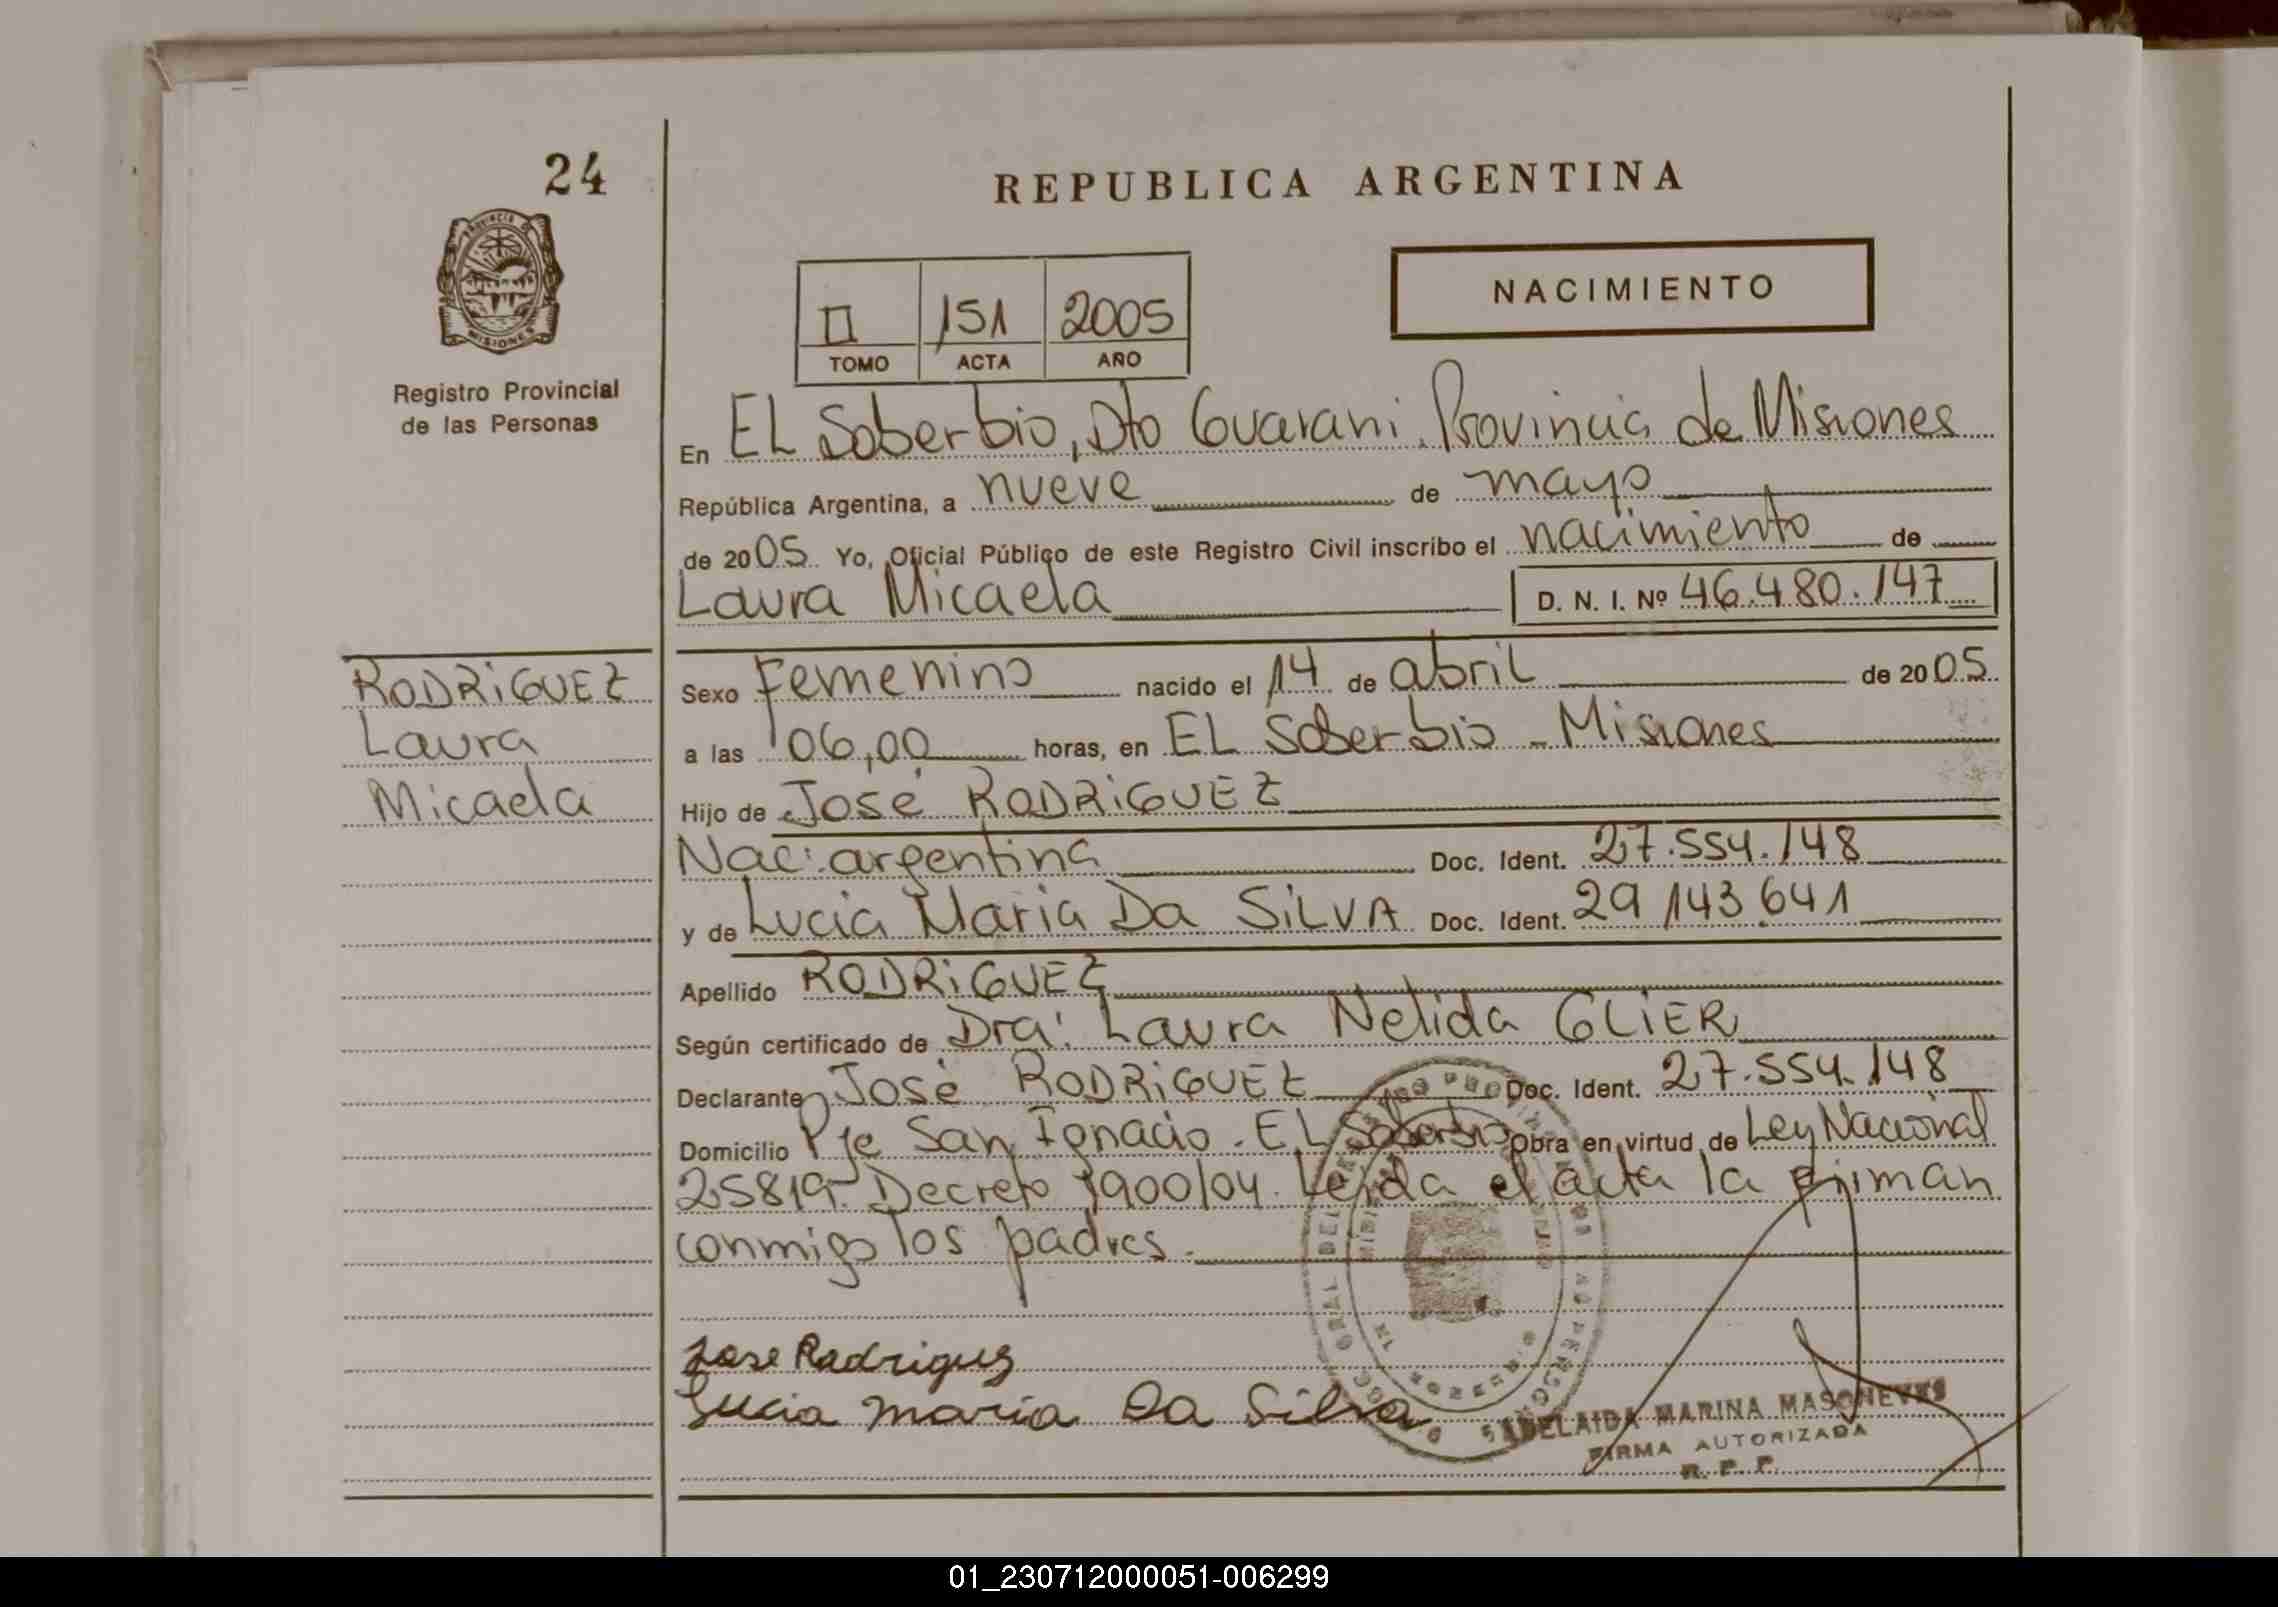 24
REPUBLICA ARGENTINA
PROVINCIA DE
MISIONES
Registro Provincial
de las Personas
NACIMIENTO
II 151 2005
TOMO ACTA AÑO
En EL Soberbio, Dto Guarani. Provincia de Misiones
República Argentina, a nueve de mayo
de 2005 Yo, Oficial Público de este Registro Civil inscribo el nacimiento de
Laura Micaela D. N. I. Nº 46.480.147
RODRiGUEZ
Laura
Micaela
Sexo Femenino nacido el 14 de abril de 2005
a las 06,00 horas, en EL Soberbio - Misiones
Hijo de José RODRiGUEZ
Nac: argentina Doc. Ident. 27.554.148
y de Lucia Maria Da SiLVA Doc. Ident. 29 143.641
Apellido RODRiGUEZ
Según certificado de Dra: Laura Nelida GLiER
Declarante José RODRiGUEZ Doc. Ident. 27.554.148
Domicilio Pje San Ignacio - EL Soberbio Obra en virtud de Ley Nacional
25819. Decreto 1900/04. Leida el acta la firman
conmigo los padres.
Jose Rodriguez
Lucia maria Da Silva
ADELAIDA MARINA MASONEVES
FIRMA AUTORIZADA
R. P. P.
01_230712000051-006299